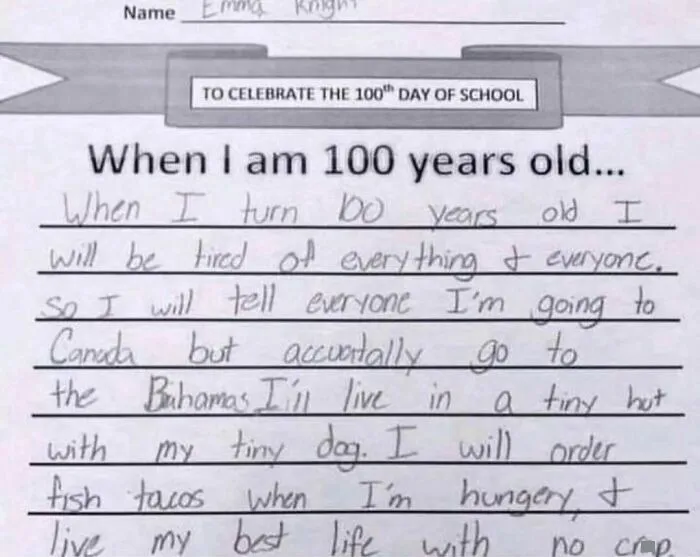 Name Emma Knight
TO CELEBRATE THE 100th DAY OF SCHOOL
When I am 100 years old...
When I turn 100 years old I
will be tired of everything & everyone.
So I will tell everyone I'm going to
Canada but accuatally go to
the Bahamas I'll live in a tiny hut
with my tiny dog. I will order
fish tacos when I'm hungery, &
live my best life with no crap.